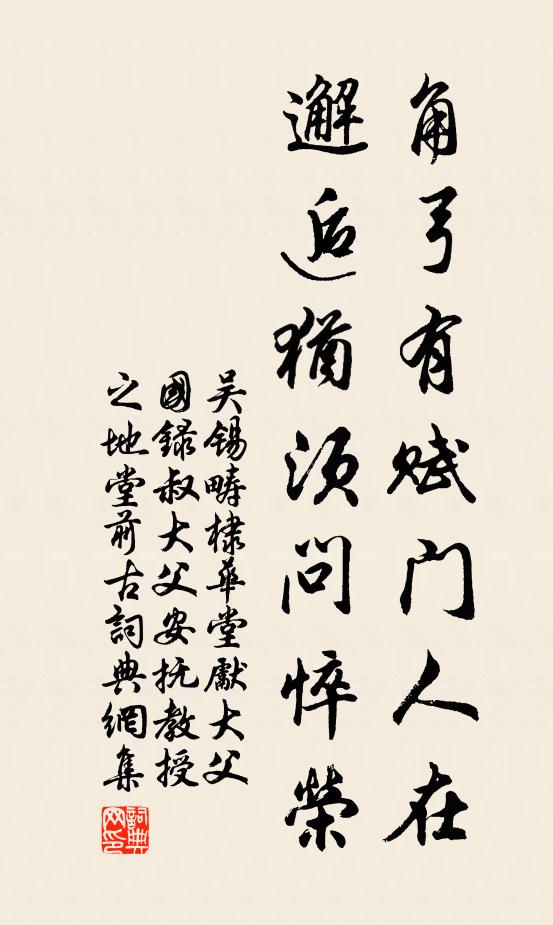 角弓有賦門人在
邂逅猶須問悴榮
吴錫疇棣華堂獻大父
國録叔大父安抚教授
之地堂前古詞典網集
詞典網印